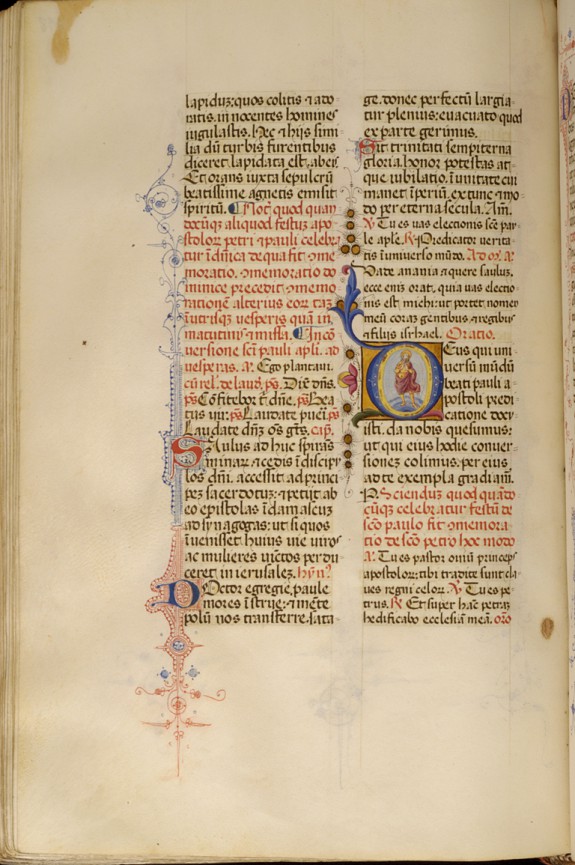 lapiduz: quos colitis ⁊ ado
ratis. in nocentes homines
iugulastis. Hec ⁊ hijs simi
lia dū turbis furentibus
diceret. lapidata est. abeis
Et orans iuxta sepulcrū
beatissime agnetis emisit
spiritū. Not quod quan
docūqz aliquod festuz apo
stolorz petri ⁊ pauli celebra
tur ī dn̄ica de qua fit ⁊me
moratio. ⁊memoratio do
minice precedit ⁊memo
rationē alterius eorz tā
ī utrisqz uesperis quā in
matutinis ⁊ missa. Incō
uersione sc̄i pauli apli. ad
uesperas. A. Ego plantaui.
cū rel. de laud. ps. Dix̄ dn̄s.
ps Cōfitebor t̄. dn̄e. ps Bea
tus uir. ps Laudate pueri. ps
Laudate dn̄z os gn̄s. cap.
Saulus ad huc spirās
minarz ⁊ cedis ī discipu
los dn̄i. accessit ad princi
pez sacerdotuz: ⁊ petijt ab
eo epistolas ī damascuz
ad synagogas: ut si quos
īuenisset huius uie uiros
ac mulieres uīctos perdu
ceret in ierusalez. hyn̄.
Doctor egregie, paule
mores īstrue: ⁊ mēte
polū nos transferre sata
ge. donec perfectū largia
tur plenius: euacuato quod
ex parte gerimus.
Sit trinitati sempiterna
gloria. honor potestas at
que iubilatio. ī unitate cui
manet īperiū. ex tunc ⁊ mo
do per eterna secula. Am̄.
V. Tu es uas electionis sc̄e pau
le aplē. R. Predicator uerita
tis ī uniuerso mūdo. Ad m̄. A.
Uade anania ⁊ quere saulus.
ecce enis orat. quia uas electio
nis est michi: ut portet nomen
meū coraz gentibus. ⁊ regibus
⁊ filijs isrhael. Oratio.
Deus qui uni
uersū mūdū
beati pauli a
postoli predi
catione docu
isti. da nobis quesumus:
ut qui eius hodie conuer
sionez colimus. per eius
ad te exempla gradiam̄.
R. Sciendus quod quādo
cūqz celebratur festū de
sc̄o paulo fit ⁊memora
tio de sc̄o petro hoc modo
A. Tu es pastor ouiū princeps
apostolorz: tibi tradite sunt cla
ues regni celorz. V. Tu es pe
trus. R. Et super hāc petrāz
hedificabo ecclesiā meā. orō